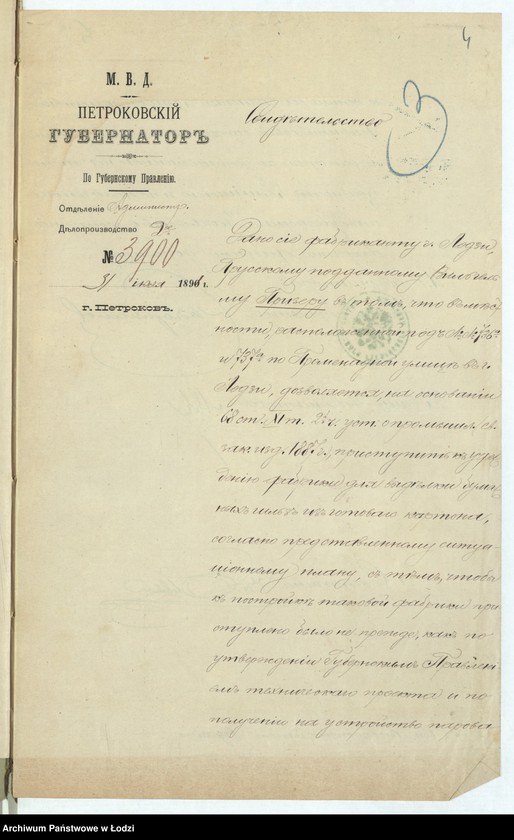 4
М. В. Д.
ПЕТРОКОВСКІЙ
ГУБЕРНАТОРЪ
По Губернскому Правленію.
Отдѣленіе Администр.
Дѣлопроизводство
№ 3900
31 1891 г.
г. Петроковъ.
Свидѣтельство
3
Дано сіе фабриканту г. Лодзи,
Прусскому подданному Вильгель
му въ томъ, что въ мѣст
ности, расположенной подъ №№ 736а
и 737а по Променадной улицѣ въ г.
Лодзи, дозволяется, на основаніи
68 ст. XI т. 2 ч. уст. о промышл. св.
зак. изд. 1887 г., приступить къ устрой
денію фабрики для выдѣлки
изъ готоваго картона,
согласно представленному ситуа-
ціонному плану, съ тѣмъ, чтобы
къ постройкѣ таковой фабрики при
ступлено было не прежде, какъ по
утвержденіи Губернскимъ Правлені
емъ техническаго проекта и по
полученіи на устройство парова
Archiwum Państwowe w Łodzi